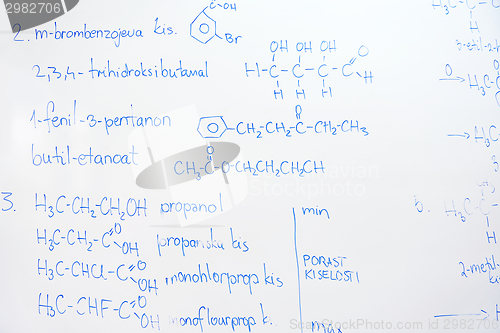 C-OH
2. m-brombenzojeva kis.
Br
2,3,4-trihidroksibutanal
OH OH OH O
H-C-C-C-C
H H H H
1-fenil-3-pentanon
O
-CH2-CH2-C-CH2-CH3
butil-etanoat
O
CH3-C-O-CH2CH2CH2CH
3. H3C-CH2-CH2OH propanol
H3C-CH2-C O OH propanska kis
H3C-CHCl-C O OH monohlorprop kis
H3C-CHF-C O OH monoflourprop k.
min
PORAST
KISELOSTI
max
H3C-C-
3-etil-2-
O
H3C
H3C-C
6. H3C-C
H
2-metil-